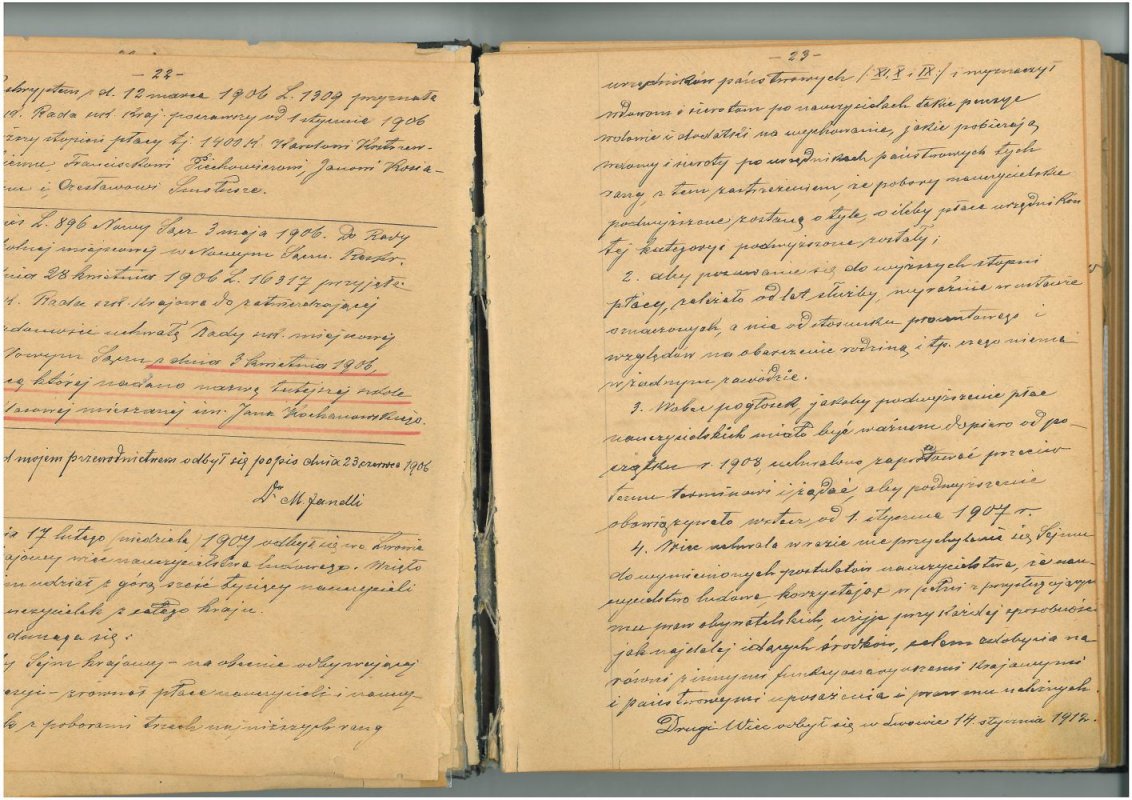 - 22 -
z d. 12 marca 1906 L. 1309 przyznała
Rada szk. kraj. począwszy od 1 stycznia 1906
stopień płacy tj. 1400 K. Karolowi
Franciszkowi Piechowiczowi, Janowi
i Czesławowi
L. 896 Nowy Sącz 3 maja 1906. Do Rady
szkolnej miejscowej w Nowym Sączu. Reskr.
dnia 28 kwietnia 1906 L. 16317 przyjęła
Rada szk. krajowa do zatwierdzającej
wiadomości uchwałę Rady szk. miejscowej
Nowym Sączu z dnia 3 kwietnia 1906,
której nadano nazwę tutejszej szkole
mieszanej im. Jana Kochanowskiego.
mojem przewodnictwem odbył się popis dnia 23 czerwca 1906
Dr M. Jandli
17 lutego, niedziela, 1907 odbył się we Lwowie
krajowy wiec nauczycielstwa ludowego. Wzięło
udział z górą sześć tysięcy nauczycieli
nauczycielek z całego kraju.
domaga się:
Sejm krajowy - na obecnie odbywającej
sesyi - zrównał płace nauczycieli i nauczy-
z poborami trzech najniższych rang
- 23 -
urzędników państwowych /: XI, X i IX :/ i wyznaczył
wdowom i sierotom po nauczycielach takie pensye
wdowie i dodatki na wychowanie, jakie pobierają
wdowy i sieroty po urzędnikach państwowych tych
rang, z tem zastrzeżeniem, że pobory nauczycielskie
podwyższone zostaną o tyle, o ileby płace urzędników
tej kategoryi podwyższone zostały;
2. aby posuwanie się do wyższych stopni
płacy, zależało od lat służby, wyraźnie w ustawie
oznaczonych, a nie od stosunku procentowego i
względów na obarczenie rodziną i tp. czego niema
w żadnym zawodzie.
3. Wobec pogłosek, jakoby podwyższenie płac
nauczycielskich miało być ważnem dopiero od po-
czątku r. 1908 uchwalono zaprotestować przeciw
temu terminowi i żądać, aby podwyższenie
obowiązywało wstecz, od 1. stycznia 1907 r.
4. Wiec uchwala w razie nie przychylania się Sejmu
do wymienionych postulatów nauczycielstwa, że nau-
czycielstwo ludowe, korzystając w pełni z przysługującego
mu praw obywatelskich, użyje przy każdej sposobności
jak najdalej idących środków, celem zdobycia na
równi z innymi funkcyonaryuszami krajowymi
i państwowymi uposażenia i praw mu należnych.
Drugi Wiec odbył się w Lwowie 14. stycznia 1912.